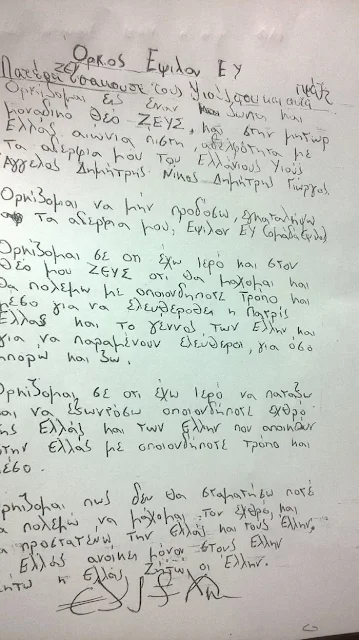 Ορκος Εψιλον ΕΥ
Πατέρα ΖΕΥ άκουσε τους Υιούς σου και αυτά
Ορκίζομαι εις έναν και ζωντα και
μοναδικο Θεό ΖΕΥΣ, και στην μητωρ
Ελλάς αιωνια πιστη, αδελφότητα με
Τα αδερφια μου του Ελλάνιους Υιούς
Αγγελος Δημήτρης Νικος Δημήτρης Γιωργος
Ορκίζομαι να μήν προδόσω, εγκαταλείψω
Τα αδερφια μου, Εψιλον ΕΥ (ομάδα Εψιλον)
Ορκίζομαι σε οτι έχω Ιερό και στον
Θεό μου ΖΕΥΣ οτι θα μάχομαι και
θα πολεμώ με οποιονδήποτε τροπο και
μεσο για να ελευθεροθει η Πατρίς
Ελλας και το γεννος των Ελλην και
για να παραμένουν ελευθεροι, για όσο
μπορω και ζω.
Ορκίζομαι σε οτι έχω Ιερό να παταξω
και να εξωντρόσω οποιονδήποτε εχθρό
της Ελλάς και των Ελλην που
στην Ελλάς με οποιονδήποτε τροπο και
μέσο.
Ορκίζομαι πως δεν θα σταματήσω ποτέ
να πολεμώ, να μάχομαι τον εχθρό, και
να προστατευω την Ελλάς και τους Ελλην.
Η Ελλάς ανοίκει μόνον στους Ελλην
Ζήτω η Ελλάς Ζήτω οι Ελλην.